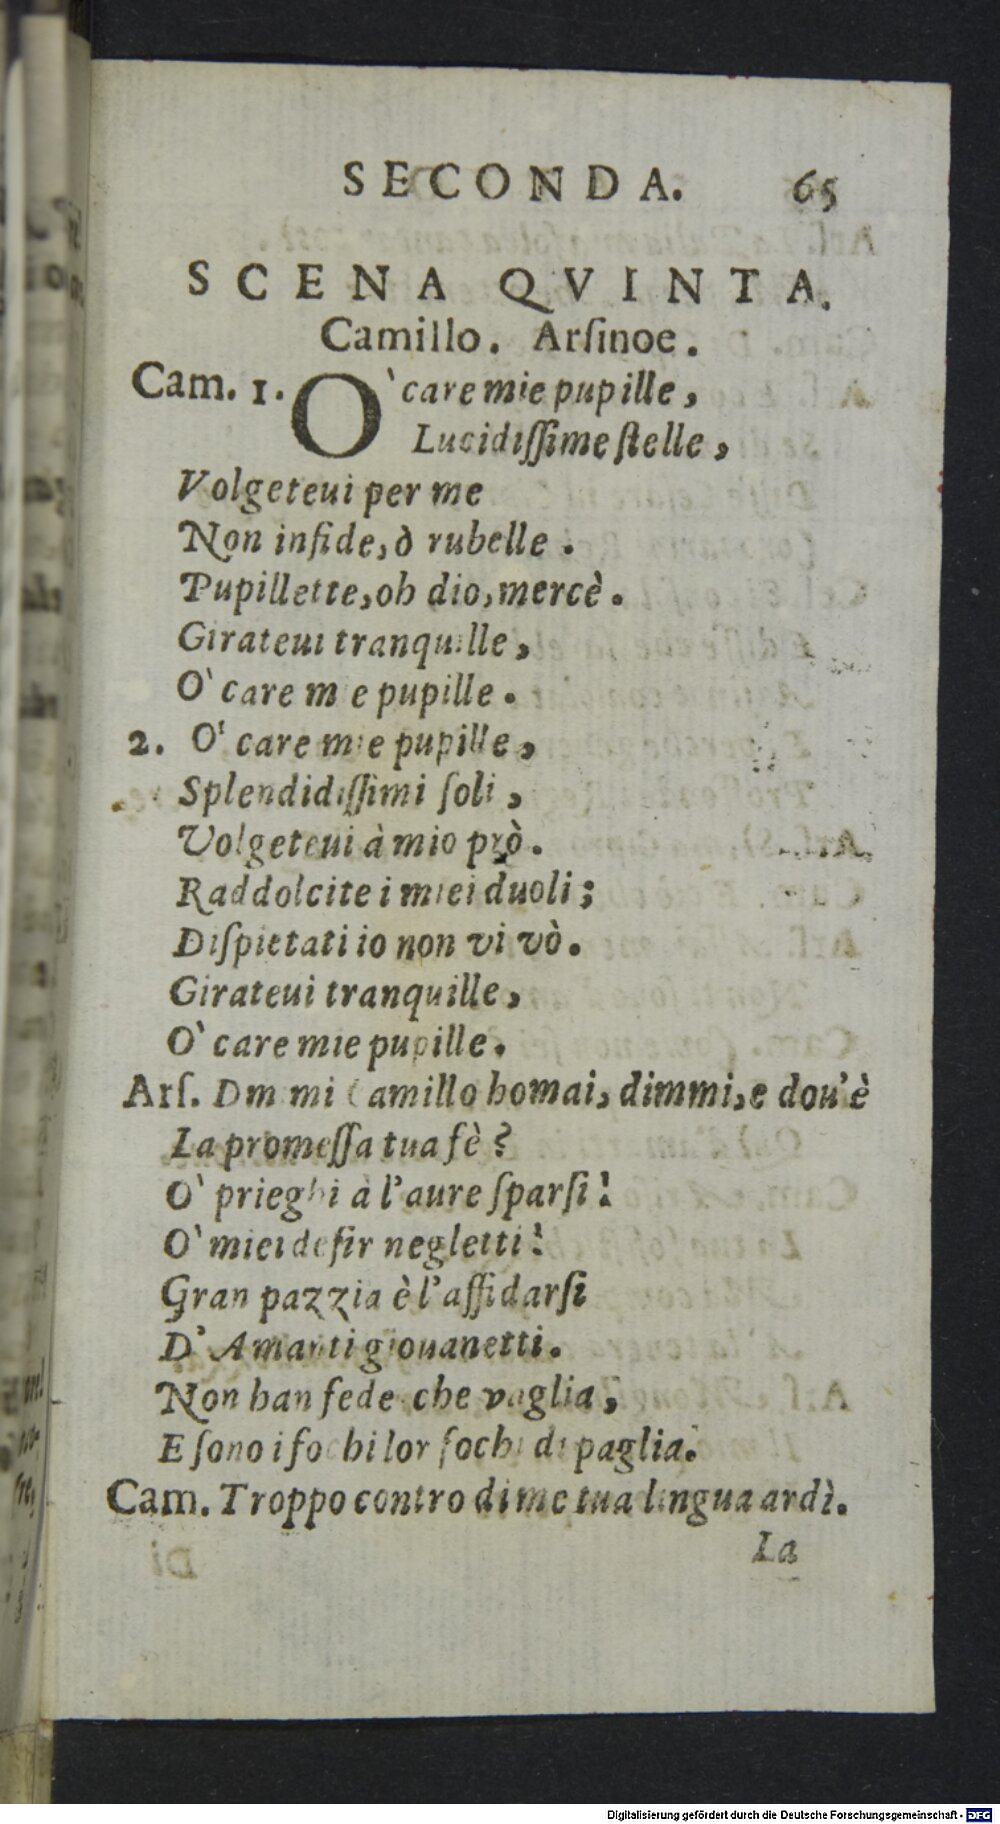 SECONDA. 65
SCENA QVINTA.
Camillo. Arſinoe.
Cam. 1. O` care mie pupille,
Lucidiſſime ſtelle,
Volgeteui per me
Non infide, ò rubelle.
Pupillette, oh dio, mercè.
Girateui tranquille,
O` care mie pupille.
2. O` care mie pupille,
Splendidiſſimi ſoli,
Volgeteui à mio prò.
Raddolcite i miei duoli;
Diſpietati io non vi vò.
Girateui tranquille,
O` care mie pupille.
Arſ. Dimmi Camillo homai, dimmi, e dou'è
La promeſſa tua fè?
O` prieghi à l'aure ſparſi!
O` miei deſir negletti!
Gran pazzia è l'affidarſi
D' Amanti giouanetti.
Non han fede che vaglia,
E ſono i fochi lor fochi di paglia.
Cam. Troppo contro di me tua lingua ardì.
La
Digitalisierung gefördert durch die Deutsche Forschungsgemeinschaft - DFG